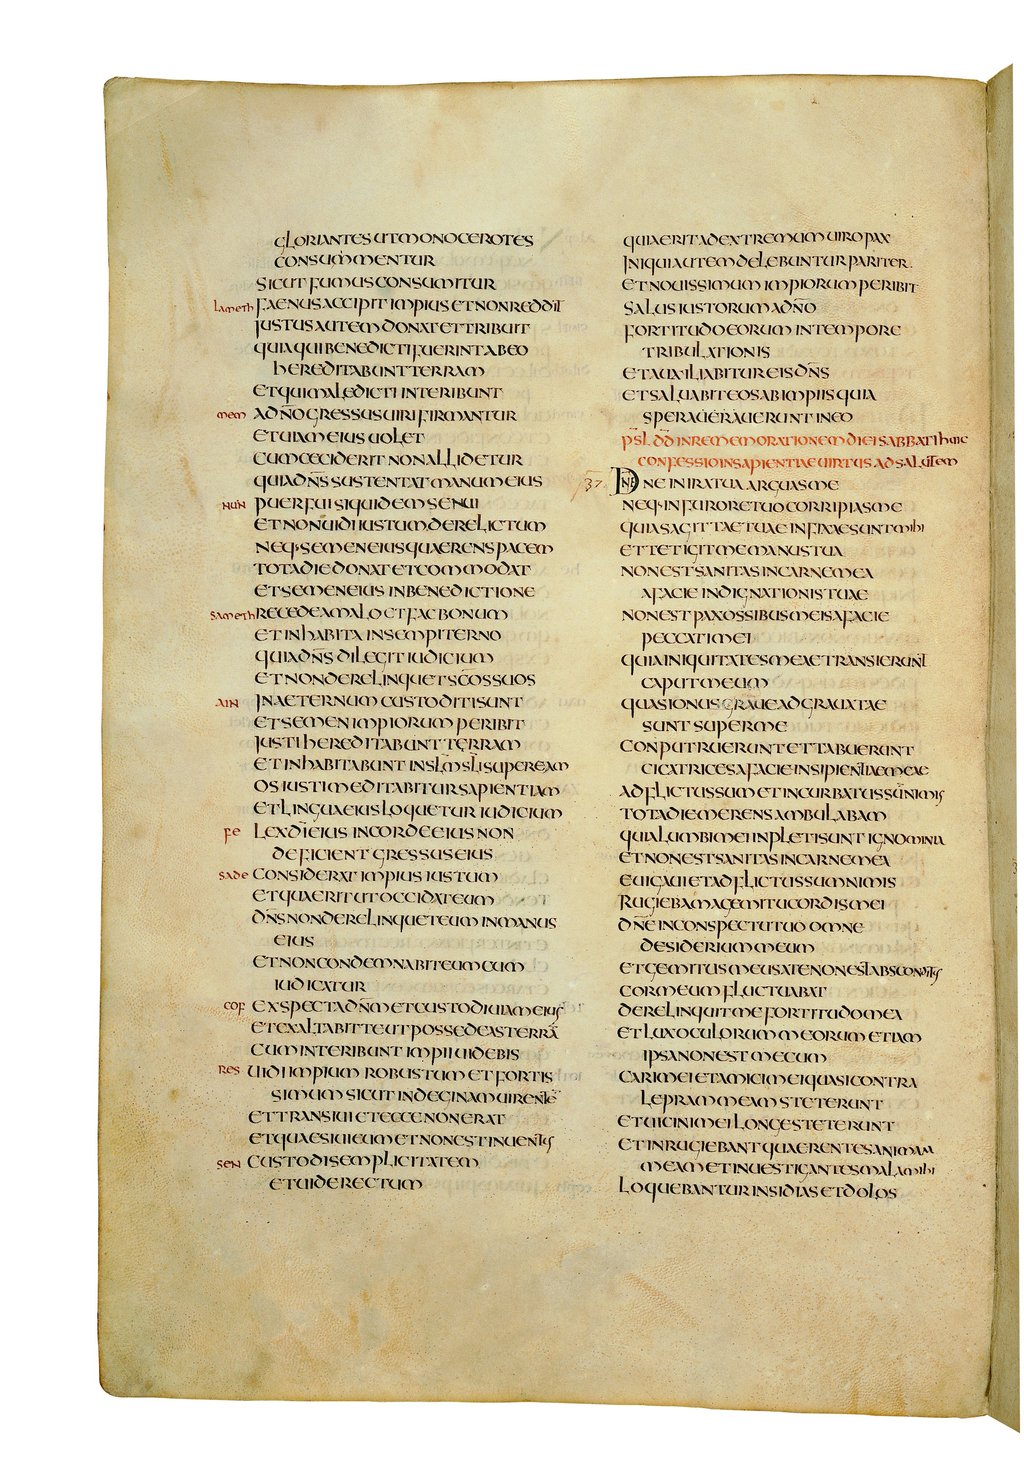 GLORIANTES UT MONOCEROTES
CONSUMMENTUR
SICUT FUMUS CONSUMITUR
lameth FAENUS ACCIPIT IMPIUS ET NON REDDIT
IUSTUS AUTEM DONAT ET TRIBUIT
QUIA QUI BENEDICTI FUERINT AB EO
HEREDITABUNT TERRAM
ET QUI MALEDICTI INTERIBUNT
mem A DN̄O GRESSUS UIRI FIRMANTUR
ET UIAM EIUS UOLET
CUM CECIDERIT NON ALLIDETUR
QUIA DN̄S SUSTENTAT MANUM EIUS
NUN PUER FUI SIQUIDEM SENUI
ET NON UIDI IUSTUM DERELICTUM
NEQ· SEMEN EIUS QUAERENS PACEM
TOTA DIE DONAT ET COMMODAT
ET SEMEN EIUS IN BENEDICTIONE
Sameth RECEDE A MALO ET FAC BONUM
ET INHABITA IN SEMPITERNO
QUIA DN̄S DILEGIT IUDICIUM
ET NON DERELINQUET SCOS SUOS
AIN IN AETERNUM CUSTODITI SUNT
ET SEMEN IMPIORUM PERIBIT
IUSTI HEREDITABUNT TERRAM
ET INHABITABUNT IN SLM SLI SUPER EAM
OS IUSTI MEDITABITUR SAPIENTIAM
ET LINGUA EIUS LOQUETUR IUDICIUM
FE LEX DI EIUS IN CORDE EIUS NON
DEFICIENT GRESSUS EIUS
SADE CONSIDERAT IMPIUS IUSTUM
ET QUAERIT UT OCCIDAT EUM
DN̄S NON DERELINQUET EUM IN MANUS
EIUS
ET NON CONDEMNABIT EUM CUM
IUDICATUR
COF EXSPECTA DN̄M ET CUSTODI UIAM EIUS
ET EXALTABIT TE UT POSSEDEAS TERRĀ
CUM INTERIBUNT IMPII UIDEBIS
RES UIDI IMPIUM ROBUSTUM ET FORTIS
SIMUM SICUT INDEGINAM UIRENTE
ET TRANSIUI ET ECCE NON ERAT
ET QUAESIUI EUM ET NON EST INUENTUS
SEN CUSTODI SEMPLICITATEM
ET UIDE RECTUM
QUIA ERIT AD EXTREMUM UIRO PAX
INIQUI AUTEM DELEBUNTUR PARITER
ET NOUISSIMUM IMPIORUM PERIBIT
SALUS IUSTORUM A DN̄O
FORTITUDO EORUM IN TEMPORE
TRIBULATIONIS
ET AUXILIABITUR EIS DN̄S
ET SALUABIT EOS AB IMPIIS QUIA
SPERAUERAUERUNT IN EO
PSL DD IN REMEMORATIONEM DIEI SABBATI HUIC
CONFESSIO IN SAPIENTIAE UIRTUS AD SALUTEM
37 DNE NE IN IRA TUA ARGUAS ME
NEQ· IN FURORE TUO CORRIPIAS ME
QUIA SAGITTAE TUAE INFIXAE SUNT MIHI
ET TETIGIT ME MANUS TUA
NON EST SANITAS IN CARNE MEA
A FACIE INDIGNATIONIS TUAE
NON EST PAX OSSIBUS MEIS A FACIE
PECCATI MEI
QUIA INIQUITATES MEAE TRANSIERUNT
CAPUT MEUM
QUASI ONUS GRAUE ADGRAUATAE
SUNT SUPER ME
CONPUTRUERUNT ET TABUERUNT
CICATRICES A FACIE INSIPIENTIAE MEAE
ADFLICTUS SUM ET INCURBATUS SUM NIMIS
TOTA DIE MERENS AMBULABAM
QUIA LUMBI MEI INPLETI SUNT IGNOMINIA
ET NON EST SANITAS IN CARNE MEA
EUIGAUI ET ADFLICTUS SUM NIMIS
RUGIEBAM A GEMITU CORDIS MEI
DN̄E IN CONSPECTU TUO OMNE
DESIDERIUM MEUM
ET GEMITUS MEUS A TE NON EST ABSCONDITUS
COR MEUM FLUCTUABAT
DERELINQUIT ME FORTITUDO MEA
ET LUX OCULORUM MEORUM ETIAM
IPSA NON EST MECUM
CARI MEI ET AMICI MEI QUASI CONTRA
LEPRAM MEAM STETERUNT
ET UICINI MEI LONGE STETERUNT
ET INRUGIEBANT QUAERENTES ANIMAM
MEAM ET INUESTIGANTES MALA MIHI
LOQUEBANTUR INSIDIAS ET DOLOS